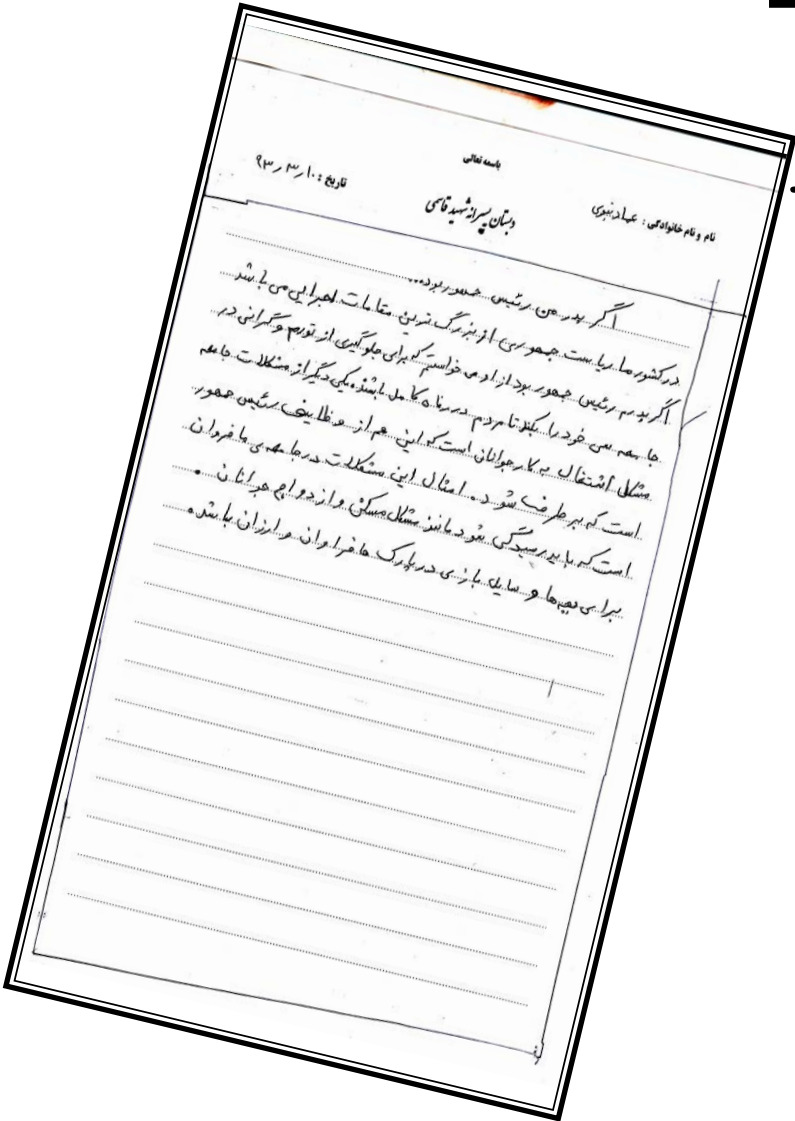 باسمه تعالی
نام و نام خانوادگی : عماد نبوی
دبستان پسرانه شهید قاسمی
تاریخ : ۹۳٫۳٫۱۰
اگر پدر من رئیس جمهور بود...
در کشور ما ریاست جمهوری از بزرگ ترین مقامات اجرایی می باشد
اگر پدرم رئیس جمهور بود از او می خواستم که برای جلوگیری از تورم و گرانی در
جامعه سعی خود را بکند تا مردم در رفاه کامل باشند. یکی دیگر از مشکلات جامعه
مشکل اشتغال به کار جوانان است که این هم از وظایف رئیس جمهور
است که بر طرف شود. امثال این مشکلات در جامعه ی ما فروان
است که باید رسیدگی شود مانند مشکل مسکن و ازدواج جوانان .
برای بچه ها و سایل بازی در پارک ها فراوان و ارزان باشد.